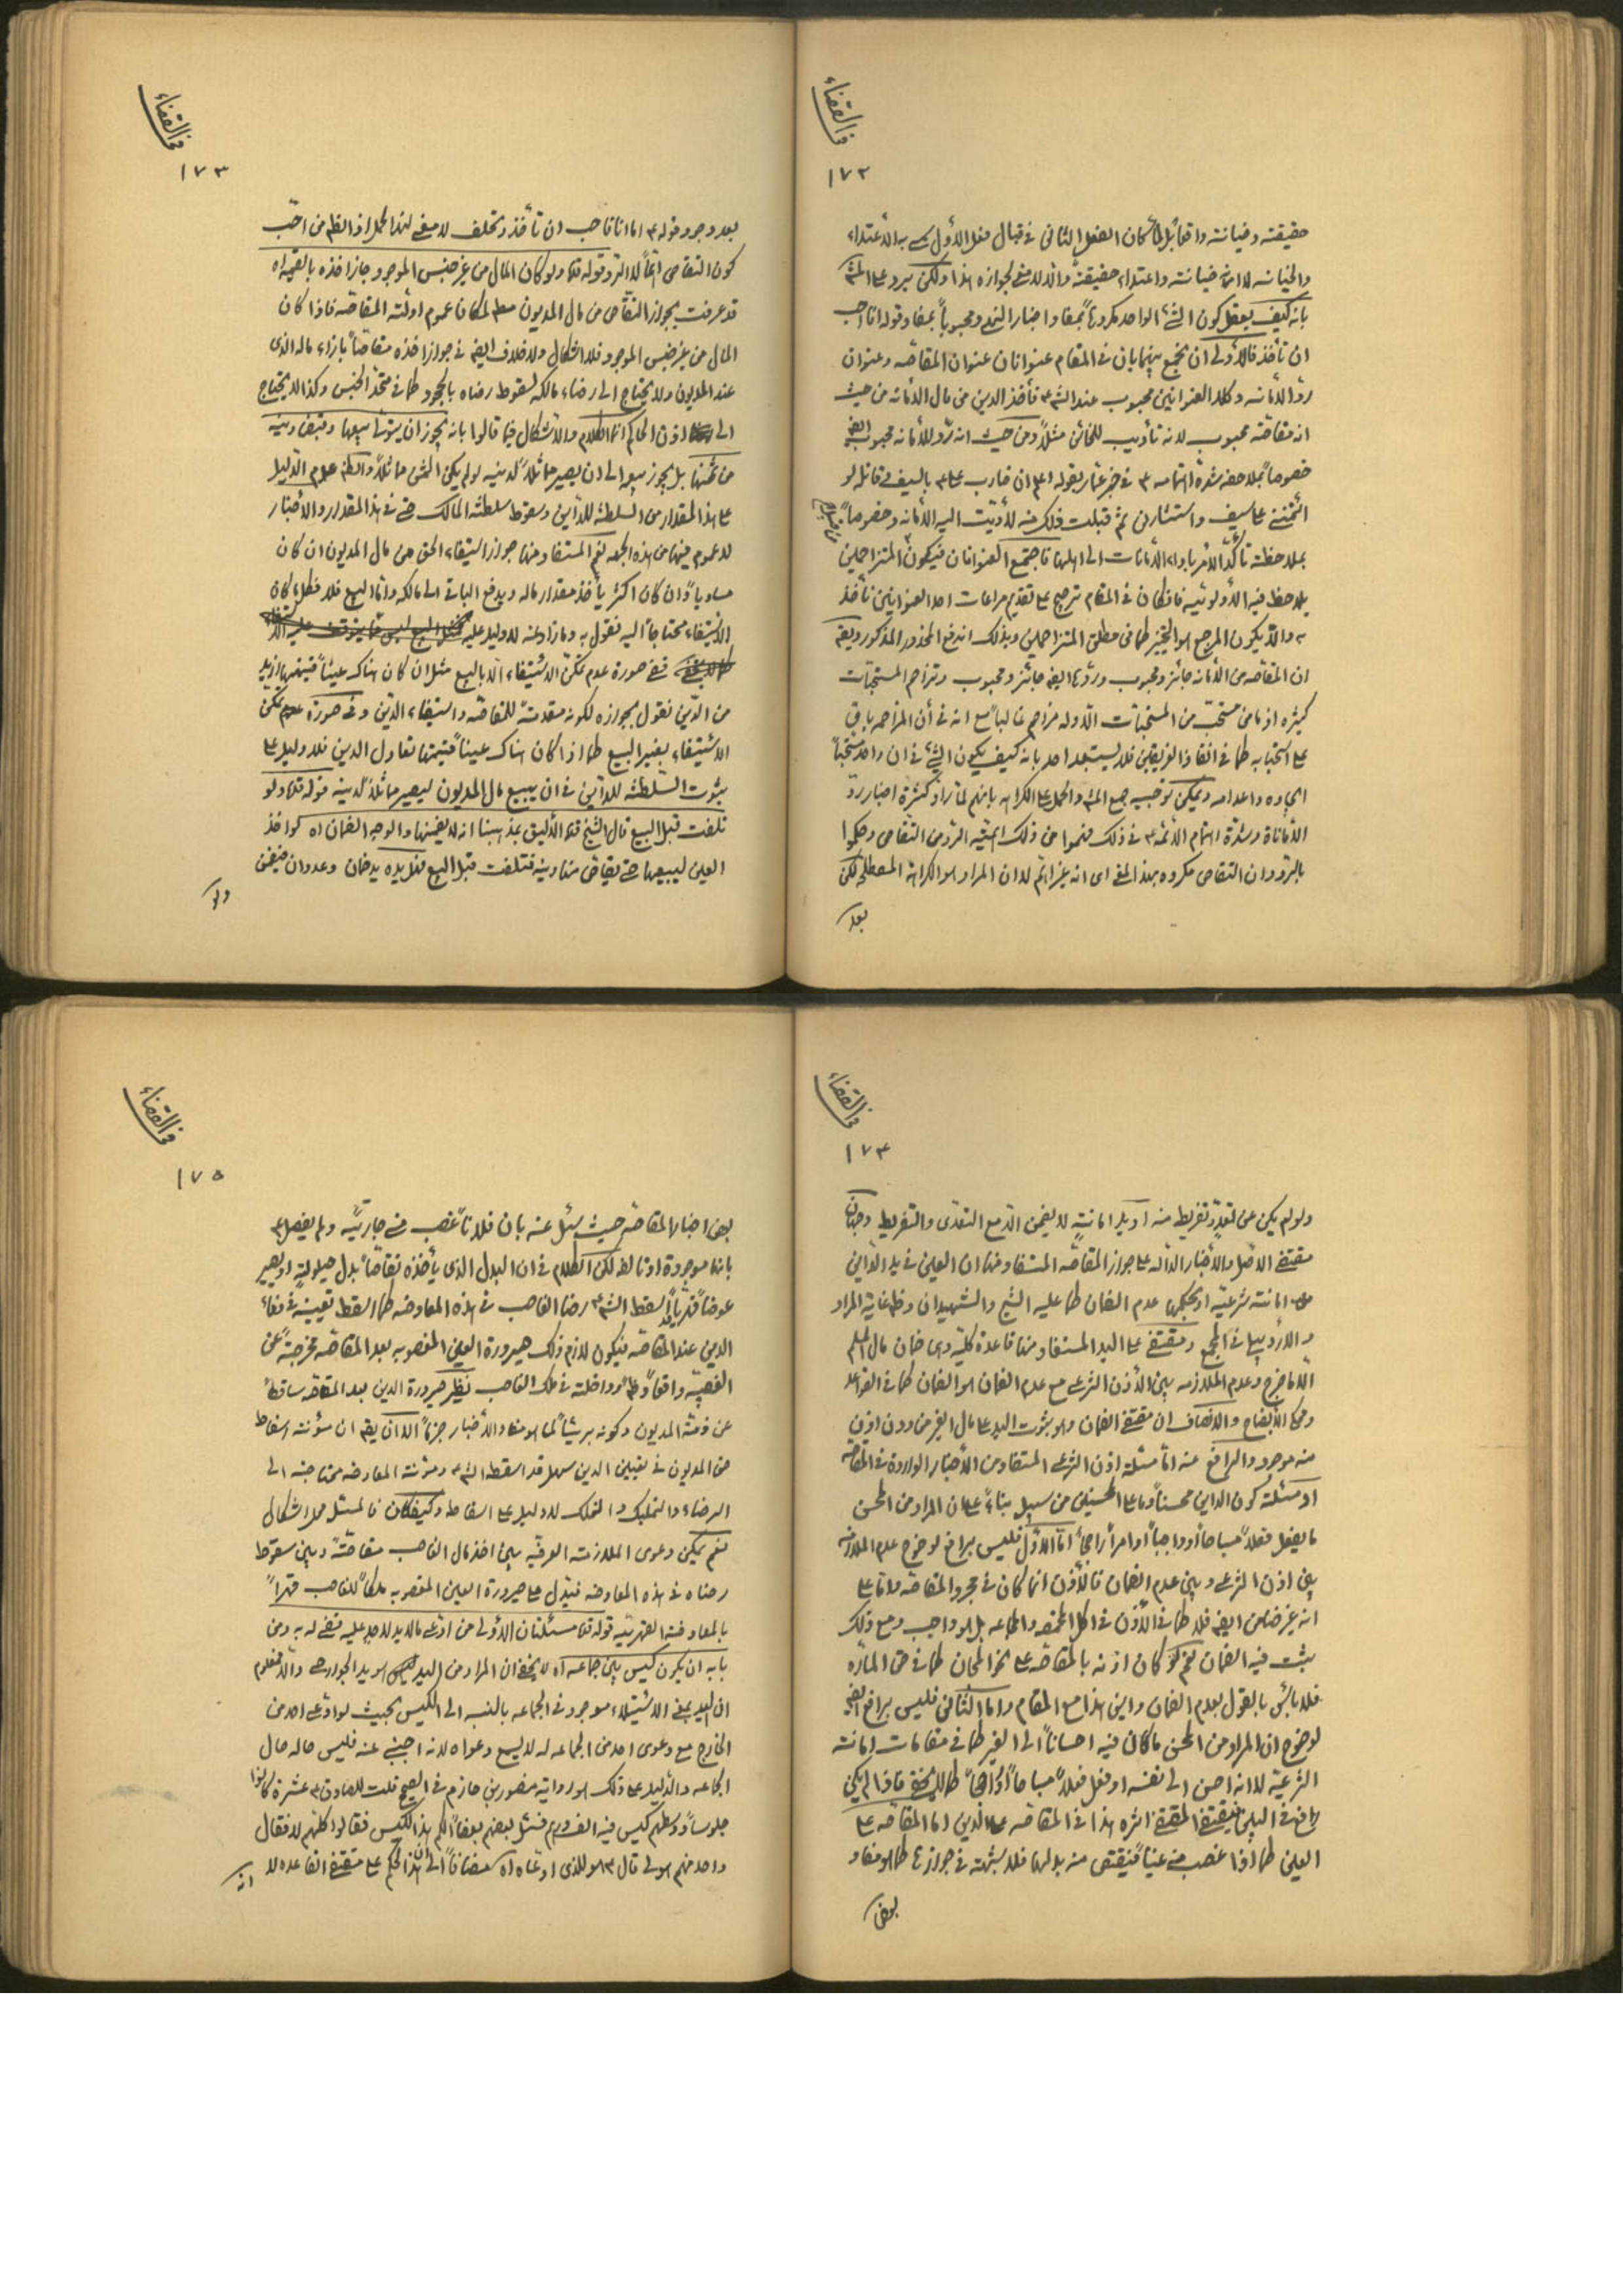 في القضاء
١٧٢
حقيقته وخيانته واقعا بل لما كان الفعل الثاني في قبال فعل الأول سمي بالاعتداء
والخيانه لا انه خيانته واعتداء حقيقة والا لا معنى لجوازه هذا ولكن يرد على المش
بانه كيف يعقل كون الشيء الواحد مكروهاً بمفاد اخبار النهي ومحبوباً بمفاد قوله انا احب
ان تأخذ فالأولى ان يجمع بينهما بان في المقام عنوانان عنوان المقاصه وعنوان
ردّ الأمانه وكلا العنوانين محبوب عند الشرع فأخذ الدين من مال الأمانه من حيث
انه مقاصّه محبوب لانه تأديب للخائن مثلاً ومن حيث انه ردّ للأمانه محبوب ايضا
خصوصاً بملاحظه شدة اهتمامه ع في خبر عمار بقوله اعلم ان ضارب علي ع بالسيف وقاتله لو
ائتمنني على سيف واستشارني ثم قبلت ذلك منه لأديّت اليه الأمانه وخصوصاً
بملاحظة تأكّد الأمر باداء الأمانات الى اهلها فاجتمع العنوانان فيكون المتزاحمين
يلاحظ فيه الأولويّه فان كان في المقام ترجيح على تقديم مراعات احد العنوانين نأخذ
به والّا يكون المرجع هو التخيير كما في مطلق المتزاحمين وبذلك اندفع المحذور المذكور ويقال
ان المقاصه من الأمانه جائز ومحبوب وردّها ايضا جائز ومحبوب وتزاحم المستحبّات
كثيره اذ ما من مستحبّ من المستحبّات الّا وله مزاحم غالباً مع انه في أن المزاحمه باق
على استحبابه كما في انقاذ الغريقين فلا يستبعد احد بانه كيف يكون الشيء في ان واحد مستحبّاً
ايجاده واعدامه ويمكن توجيه جمع المش والحمل على الكراهه بانهم لما رأوا كثرة اخبار ردّ
الأمانة وشدّة اهتمام الأئمّه ع في ذلك فهموا من ذلك اهميّه الردّ من التقاص وحكموا
بالردّ وان التقاص مكروه بهذا المعنى اى انه غير اهمّ لا ان المراد هو الكراهة المصطلح لكن
بعد
في القضاء
١٧٣
بعد وجود قوله ع اما انا فاحب ان تأخذ وتحلف لا معنى لهذا الحمل اذ الظ من احب
كون التقاص اهمّاً لا الردّ قوله قده ولو كان المال من غير جنس الموجود جاز اخذه بالقيمه اه
قد عرفت بجواز التقاص من مال المديون مطلقا لمكان عموم ادلّة المقاصّه فاذا كان
المال من غير جنس الموجود فلا اشكال ولا خلاف ايضا في جواز اخذه مقاصّاً بازاء ماله الذى
عند المديون ولا يحتاج الى رضاء مالكه لسقوط رضاه بالجحود كما في متّحد الجنس وكذا لا يحتاج
الى اذن الحاكم انما الكلام والاشكال فيما قالوا بانه يجوز ان يتولى بيعها وقبض دينه
من ثمنها بل يجوز بيعها الى ان يصير مماثلاً لدينه لو لم يكن الثمن مماثلاً والظ عدم الدليل
على هذا المقدار من السلطنة للدّاين وسقوط سلطنة المالك حتى في هذا المقدار والأخبار
لا عموم فيها من هذه الجهه نعم المستفاد منها جواز استيفاء الحق من مال المديون ان كان
مساوياً وان كان اكثر يأخذ مقدار ماله ويدفع الباقي الى مالكه وامّا البيع فلا فكل ما كان
الاستيفاء محتاجاً اليه نقول به وما زاد عنه لا دليل عليه
ففي صورة عدم تمكّن الاستيفاء الّا بالبيع مثل ان كان هناك عيناً قيمتها ازيد
من الدّين نقول بجوازه لكونه مقدمة للمقاصّه واستيفاء الدّين وفي صورة تمكن
الاستيفاء بغير البيع كما اذا كان هناك عيناً قيمتها تعادل الدين فلا دليل على
ثبوت السّلطنه للدّاين في ان يبيع مال المديون ليصير مماثلاً لدينه قوله قده ولو
تلفت قبل البيع قال الشيخ قده الأليق بمذهبنا انه لا يضمنها والوجه الضمان اه لو اخذ
العين ليبيعها حتى يقاص منها دينه فتلفت قبل البيع فهل يده يد ضمان وعدوان فيضمن
ولو
في القضاء
١٧٤
ولو لم يكن عن تعدٍّ وتفريط منه او يد امانةٍ لا يضمن الّا مع التعدّى والتفريط وجهان
مقتضى الاصل والأخبار الدالّه على جواز المقاصّه المستفاد منها ان العين في يد الدّاين
امانته شرعيّه او بحكمها عدم الضمان كما عليه الشيخ والشهيدان وظ غاية المراد
والأردبيلي في المجمع ومقتضى على اليد المستفاد منها قاعدة كليّه وهى ضمان مال المسلم
الّا ما خرج وعدم الملازمه بين الأذن الشرعى مع عدم الضمان هو الضمان كما في القواعد
ومحكى الأيضاح والانصاف ان مقتضى الضمان وهو ثبوت اليد على مال الغير من دون اذن
منه موجود والرافع عنه امّا مسئله اذن الشرعى المستفاد من الأخبار الواردة في المقاصه
او مسئلة كون الداين محسناً وما على المحسنين من سبيل بناءً على ان المراد من المحسن
ما يفعل فعلاً مباحاً او واجباً او امراً راجحاً امّا الاوّل فليس برافع لوضوح عدم الملازمه
بين اذن الشرعى وبين عدم الضمان فالأذن انما كان في مجرد المقاصّه واما على
انه غير ضامن ايضا فلا كما في الأذن في اكل المخمصه والمجاعه بل هو واجب ومع ذلك
يثبت فيه الضمان نعم لو كان اذنه بالمقاصّه على نحو المجان كما في حق المارّه
فلا بأس بالقول بعدم الضمان واين هذا مع المقام واما الثاني فليس برافع ايضا
لوضوح ان المراد من المحسن ما كان فيه احساناً الى الغير كما في مقامات امانة
الشرعيّة لا انه احسن الى نفسه او فعل فعلاً مباحاً او راجحاً كما لا يخفى فاذا لم يكن
رافع في البين فيقتضى المقتضى اثره هذا في المقاصّه على الدين اما المقاصّه على
العين كما اذا غصب منه عيناً فيقتص منه بدلها فلا شبهة في جوازها كما هو مفاد
بعض
في القضاء
١٧٥
بعض اخبار المقاصّه حيث سئل عنه بان فلاناً غصب منى جاريتى ولم يفصل ع
بانها موجودة او تالفه لكن الكلام في ان البدل الذى يأخذه تقاصّاً بدل حيلولةٍ او يصير
عوضاً قهريّاً اسقط الشرع رضا الغاصب في هذه المعاوضه كما اسقط تعيينه في وفاء
الدين عند المقاصّه فيكون لازم ذلك صيرورة العين المغصوبه بعد المقاصّه مخرجة عن
الغصبيّة واقعاً وداخلة في ملك الغاصب نظير صيرورة الدين بعد المقاصه ساقطاً
عن ذمّة المديون وكونه بريئاً كما هو مفاد الأخبار جزماً الّا ان يقال ان مؤنته اسقاط
حق المديون في تعيين الدين سهل قد اسقط الشرع ومؤنة المعاوضه محتاجة الى
الرضاء والتمليك والتملك لا دليل على اسقاطه وكيف كان فالمسئلة محل اشكال
نعم يمكن دعوى الملازمة العرفيّه بين اخذ مال الغاصب مقاصّة وبين سقوط
رضاه في هذه المعاوضه فيدل على صيرورة العين المغصوبه ملكاً للغاصب قهراً
بالمعاوضة القهريّه قوله قده مسئلتان الاولى من ادّعى مالا يد لاحد عليه قضى له به ومن
بابه ان يكون كيس بين جماعه اه لا يخفى ان المراد من اليد ليس هو يد الجوارحى والّا فمعلوم
ان اليد بمعنى الاستيلاء موجود في الجماعه بالنسبه الى الكيس بحيث لو ادّعى احد من
الخارج مع دعوى احد من الجماعه له لا يسمع دعواه لانه اجنبى عنه فليس حاله حال
الجماعه والدليل على ذلك هو رواية منصور بن حازم في الصحيح قلت للصادق ع عشرة كانوا
جلوساً ووسطهم كيس فيه الف درهم فسئل بعضهم بعضاً الكم هذا الكيس فقالوا كلهم لا فقال
واحد منهم هو لى قال ع هو للذى ادّعاه اه مضافاً الى ان هذا الحكم على مقتضى القاعده لا
انه